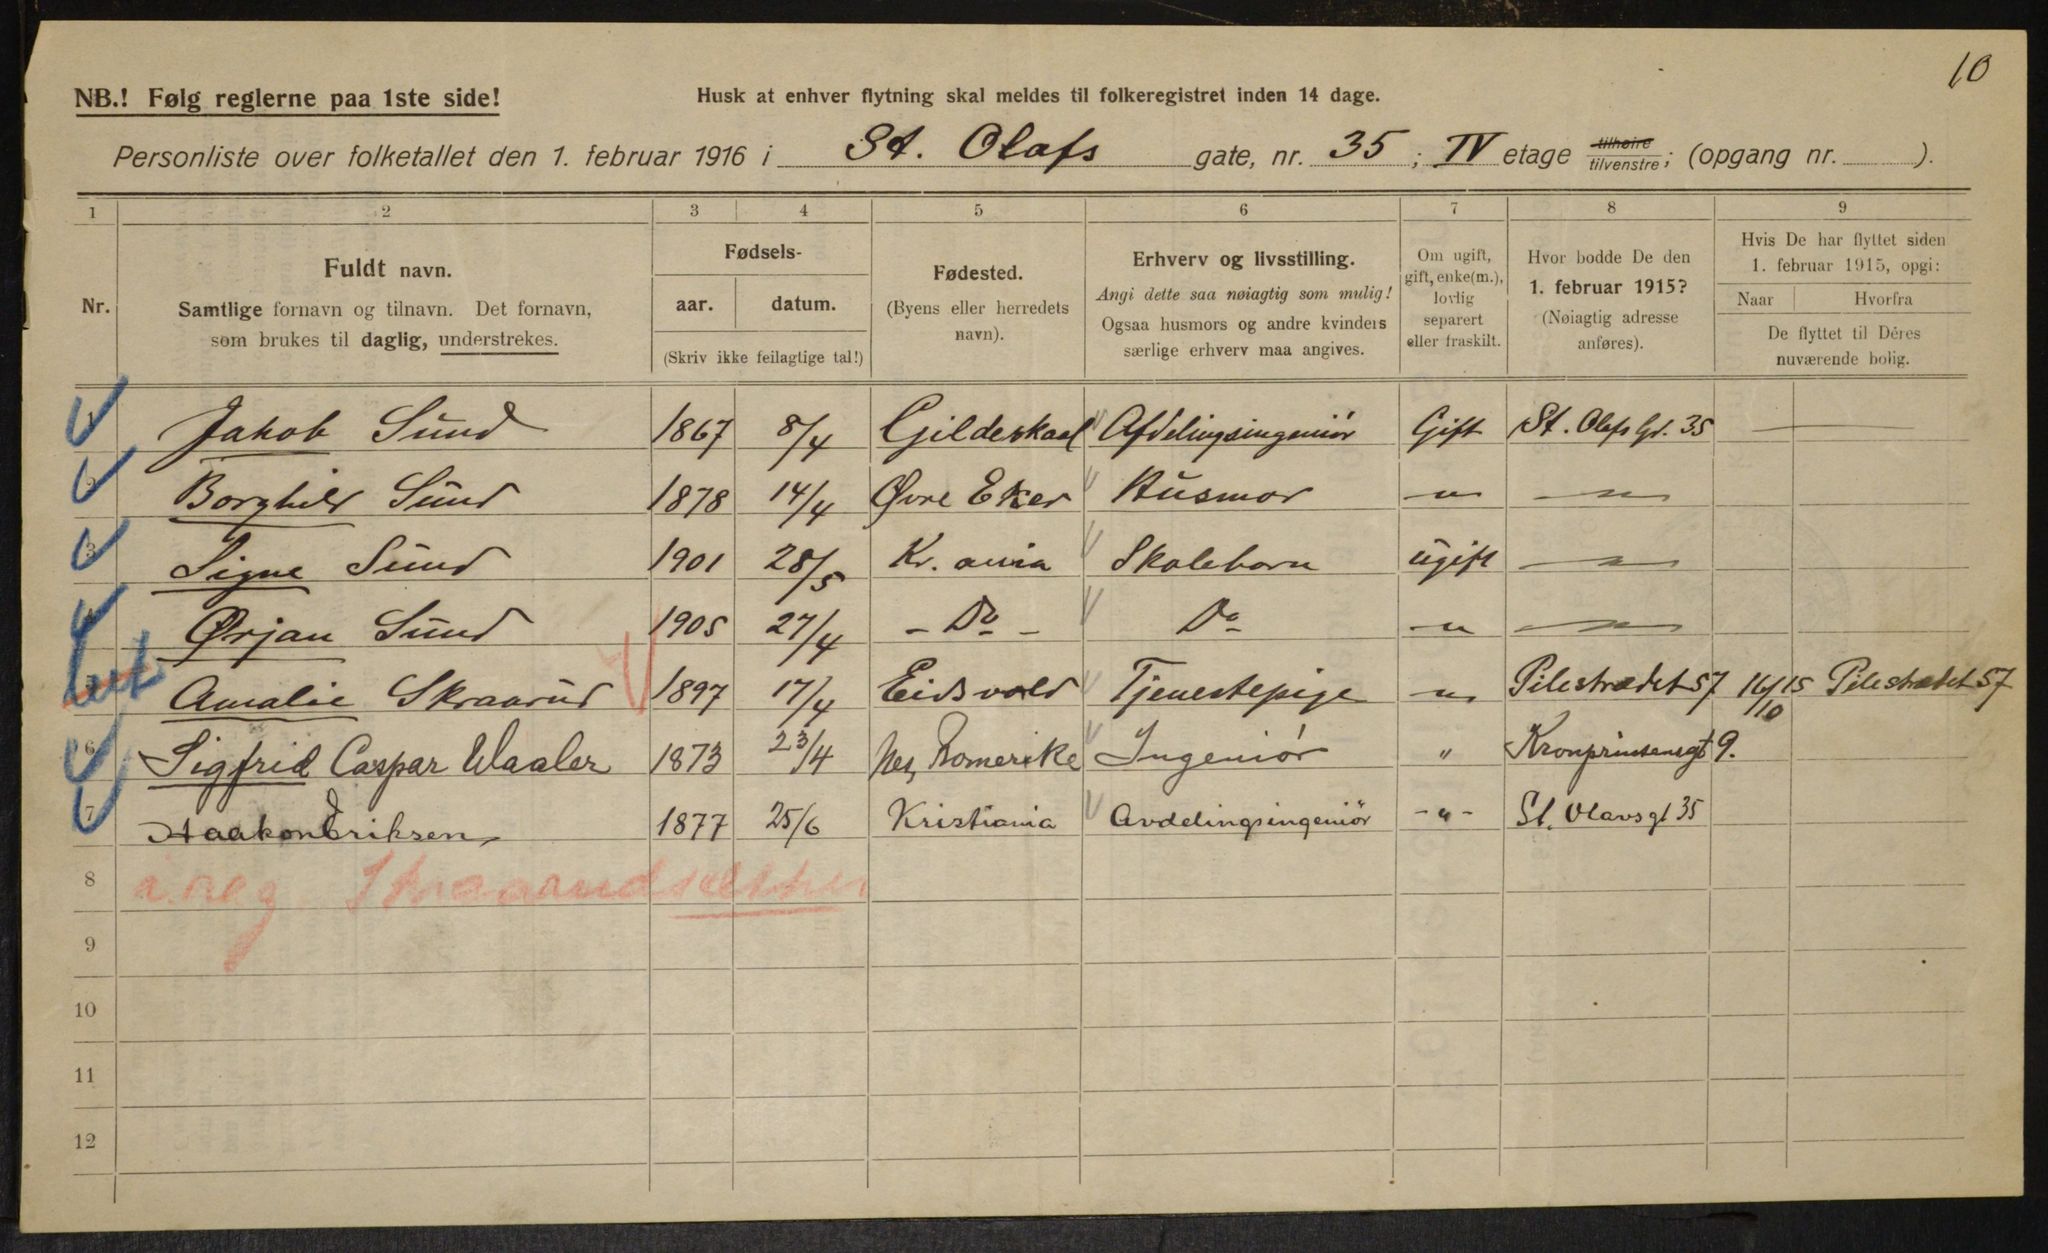 10
NB.! Følg reglerne paa 1ste side!
Husk at enhver flytning skal meldes til folkeregistret inden 14 dage.
Personliste over folketallet den 1. februar 1916 i St. Olafs gate, nr. 35; IV etage tilhøire tilvenstre; (opgang nr. ).
1 2 3 4 5 6 7 8 9
Nr.
Fuldt navn.
Samtlige fornavn og tilnavn. Det fornavn,
som brukes til daglig, understrekes.
Fødsels-
aar. datum.
(Skriv ikke feilagtige tal!)
Fødested.
(Byens eller herredets
navn).
Erhverv og livsstilling.
Angi dette saa nøiagtig som mulig!
Ogsaa husmors og andre kvinders
særlige erhverv maa angives.
Om ugift,
gift, enke(m.),
lovlig
separert
eller fraskilt.
Hvor bodde De den
1. februar 1915?
(Nøiagtig adresse
anføres).
Hvis De har flyttet siden
1. februar 1915, opgi:
Naar Hvorfra
De flyttet til Deres
nuværende bolig.
1 Jakob Sund 1867 8/4 Gildeskaal Afdelingsingeniör Gift St. Olafs Gt. 35 —
2 Borghild Sund 1878 14/4 Øvre Eker Husmor — " — — " —
3 Signe Sund 1901 28/5 Kr. ania Skolebarn ugift — " —
4 Ørjan Sund 1905 27/4 - Do - Do — " — — " —
5 Amalie Skraarud 1897 17/4 Eidsvold Tjenestepige — " — Pilestrædet 57 16/10 15 Pilestrædet 57
6 Sigfrid Caspar Waaler 1873 23/4 Nes, Romerike Ingeniör " Kronprinsensgt 9.
7 Haakon Eriksen 1877 25/6 Kristiania Avdelingsingeniör - " - St. Olavsgt 35
8
9
10
11
12